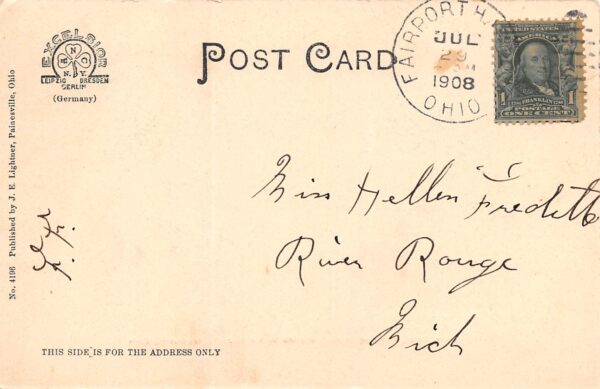 EXCELSIOR
M N G
N.Y.
LEIPZIG DRESDEN
BERLIN
(Germany)
POST CARD
FAIRPORT H
JUL
29
M
1908
OHIO
UNITED STATES
OF AMERICA
1 FRANKLIN 1
POSTAGE
ONE CENT
No. 4196 Published by J. E. Lightner, Painesville, Ohio
Miss Hellen Fredette
River Rouge
Mich
THIS SIDE IS FOR THE ADDRESS ONLY